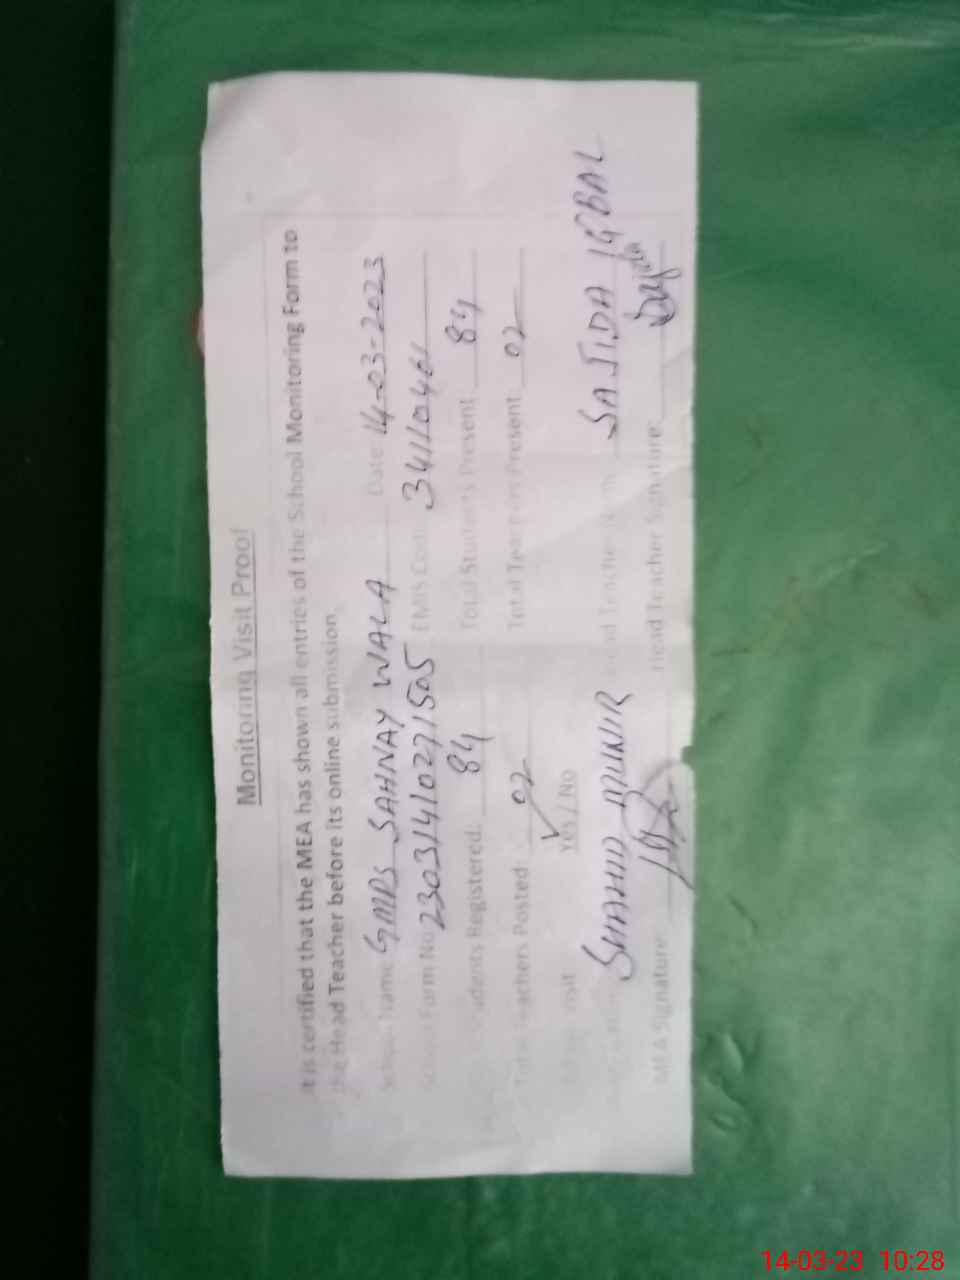 Monitoring Visit Proof
It is certified that the MEA has shown all entries of the School Monitoring Form to
the Head Teacher before its online submission.
School Name GMPS SAHNAY WALA Date 14-03-2023
School Form No 230314102771505 EMIS Code 34110401
Students Registered: 84 Total Students Present 84
Total Teachers Posted: 02 Total Teachers Present: 02
Visit Yes / No
SHAHID MUNIR Head Teacher SAJIDA IQBAL
MEA Signature: Head Teacher Signature: Sajida
14-03-23 10:28